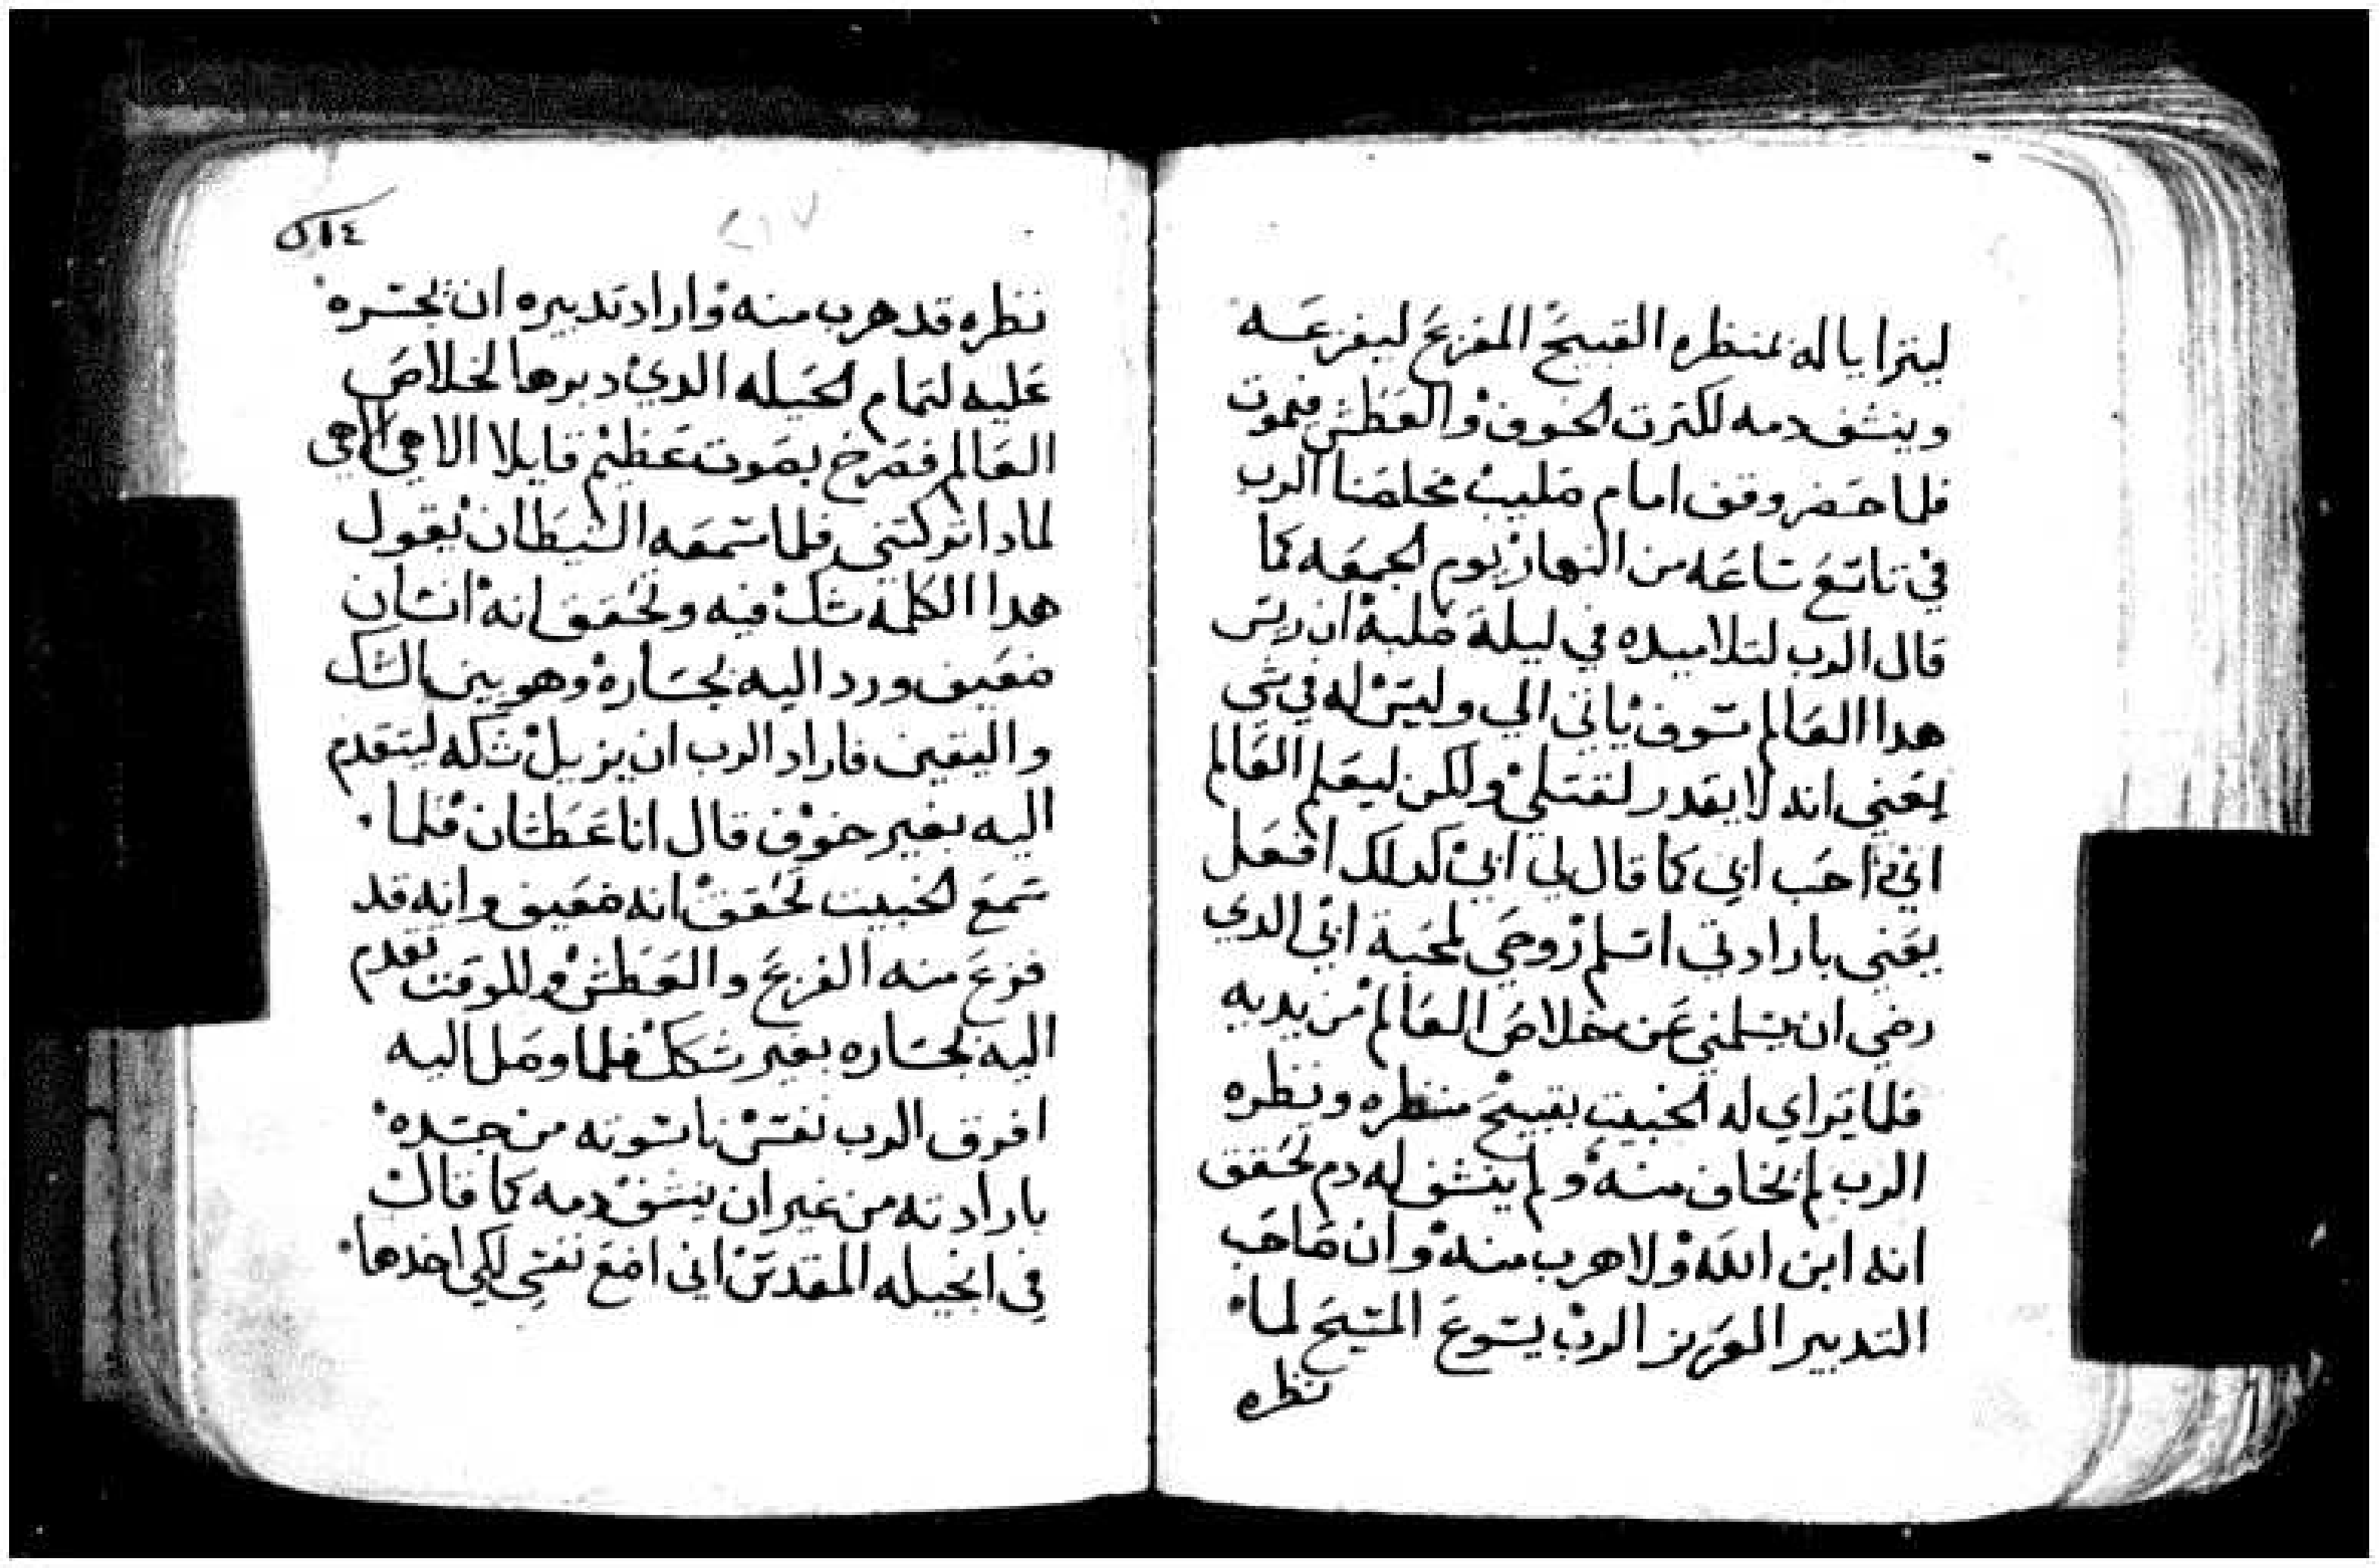 ليترايا له بمنظره القبيح المفزع ليفزعه
وينشف دمه لكترت الخوف والعطش فيموت
فلما حضر وقف امام صليب مخلصنا الرب
في تاسع ساعه من النهار يوم الجمعه كما
قال الرب لتلاميده في ليلة صلبه ان ريس
هدا العالم سوف ياتي الي وليس له في شي
يعني انه لا يقدر لقتلي ولكن ليعلم العالم
اني احب ابي كما قال لي ابي كدلك افعل
يعني بارادتي اسلم روحي لمحبة ابي الدي
رضي ان يسلمني عن خلاص العالم من يديه
فلما يراي له الخبيت بقبيح منظره ونظره
الرب لم يخاف منه ولم ينشف له دم تحقق
انه ابن الله ولا هرب منه وان صاحب
التدبير العزيز الرب يسوع المسيح لما
نظره
٥١٤
٢١٧
نظره قد هرب منه واراد تدبيره ان يجسره
عليه لتمام الحيله الدي دبرها لخلاص
العالم فصرخ بصوت عظيم قايلا الاهي الاهي
لمادا تركتني فلما سمعه الشيطان يقول
هدا الكلمة شك فيه وتحقق انه انسان
ضعيف ورد اليه بجساره وهو بين الشك
واليقين فاراد الرب ان يزيل شكه ليتقدم
اليه بغير خوف قال انا عطشان فلما
سمع الخبيت تحقق انه ضعيف وانه قد
فزع منه الفزع والعطش وللوقت تقدم
اليه بجساره بغير شك فلما وصل اليه
افرق الرب نفس ناسوته من جسده
بارادته من غير ان ينشف دمه كما قال
في انجيله المقدس اني اضع نفسي لكي اخدها